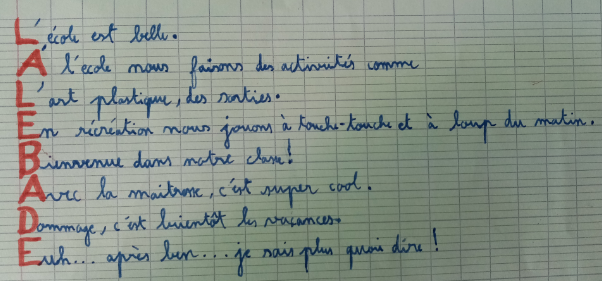 L'école est belle.
A l'école nous faisons des activités comme
L'art plastique, des sorties.
En récréation nous jouons à touche-touche et à loup du matin.
Bienvenue dans notre classe!
Avec la maitresse, c'est super cool.
Dommage, c'est bientôt les vacances.
Euh... après ben... je sais plus quoi dire!